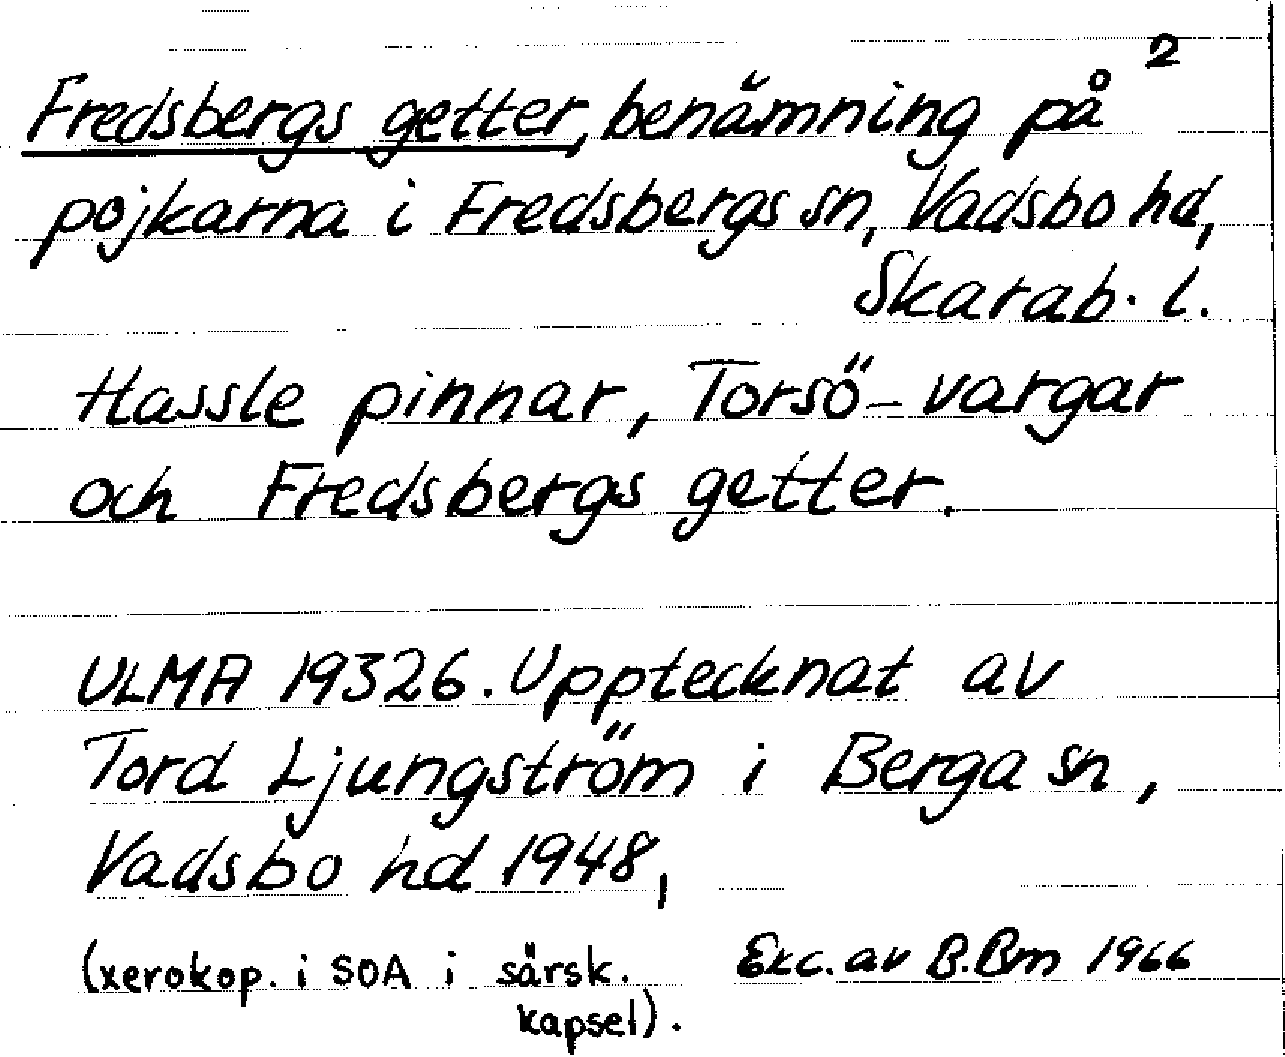 2
Fredsbergs getter, benämning på
pojkarna i Fredsbergs sn, Vadsbo hd,
Skarab. l.
Hassle pinnar, Torsö-vargar
och Fredsbergs getter.
ULMA 19326. Upptecknat av
Tord Ljungström i Berga sn,
Vadsbo hd 1948,
(xerokop. i SOA i särsk. Exc. av B.Bm 1966
kapsel).